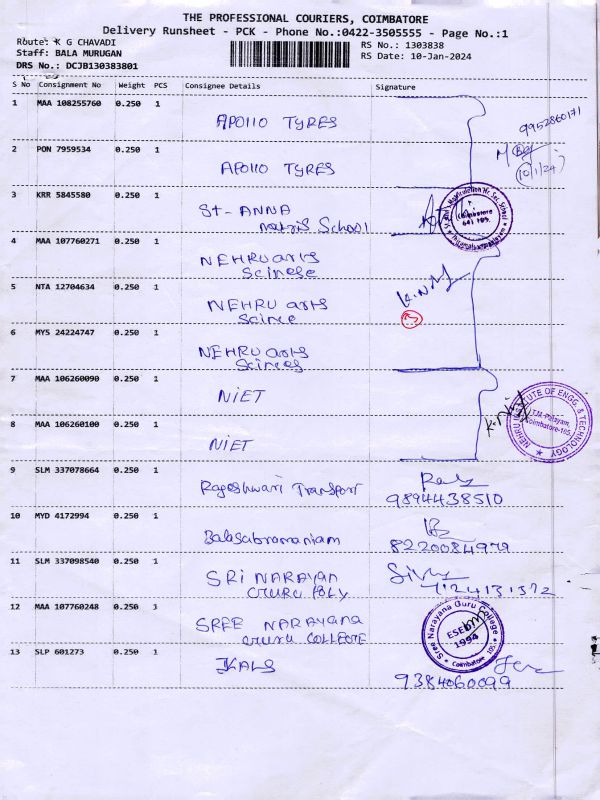 THE PROFESSIONAL COURIERS, COIMBATORE
Delivery Runsheet - PCK - Phone No.:0422-3505555 - Page No.:1
Route: K G CHAVADI
RS No.: 1303838
Staff: BALA MURUGAN
RS Date: 10-Jan-2024
DRS No.: DCJB130383801
S No Consignment No Weight PCS Consignee Details Signature
1 MAA 108255760 0.250 1 APOllO TYRES
9952860171
2 PON 7959534 0.250 1 APOllO TYRES
10/1/24
3 KRR 5845580 0.250 1 St- ANNA
School
Coimbatore
641 105.
4 MAA 107760271 0.250 1 NEHRU arts
Scinese
5 NTA 12704634 0.250 1 NEHRU arts
Scince
6 MYS 24224747 0.250 1 NEHRU arts
Scinces
7 MAA 106260090 0.250 1 NIET
NEHRU INSTITUTE OF ENGG. & TECHNOLOGY
T.M. Palayam,
Coimbatore-105.
8 MAA 106260100 0.250 1 NIET
9 SLM 337078664 0.250 1 Rageshwari Transport
9894438510
10 MYD 4172994 0.250 1 Balasabromaniam
8220084979
11 SLM 337098540 0.250 1 SRI NARAYAN
GURU POLY
7124131372
12 MAA 107760248 0.250 1 SREE NARAYANA
GURU COLLEGE
Sree Narayana Guru College
ESED
1994
Coimbatore 105
13 SLP 601273 0.250 1 KALS
9384060099